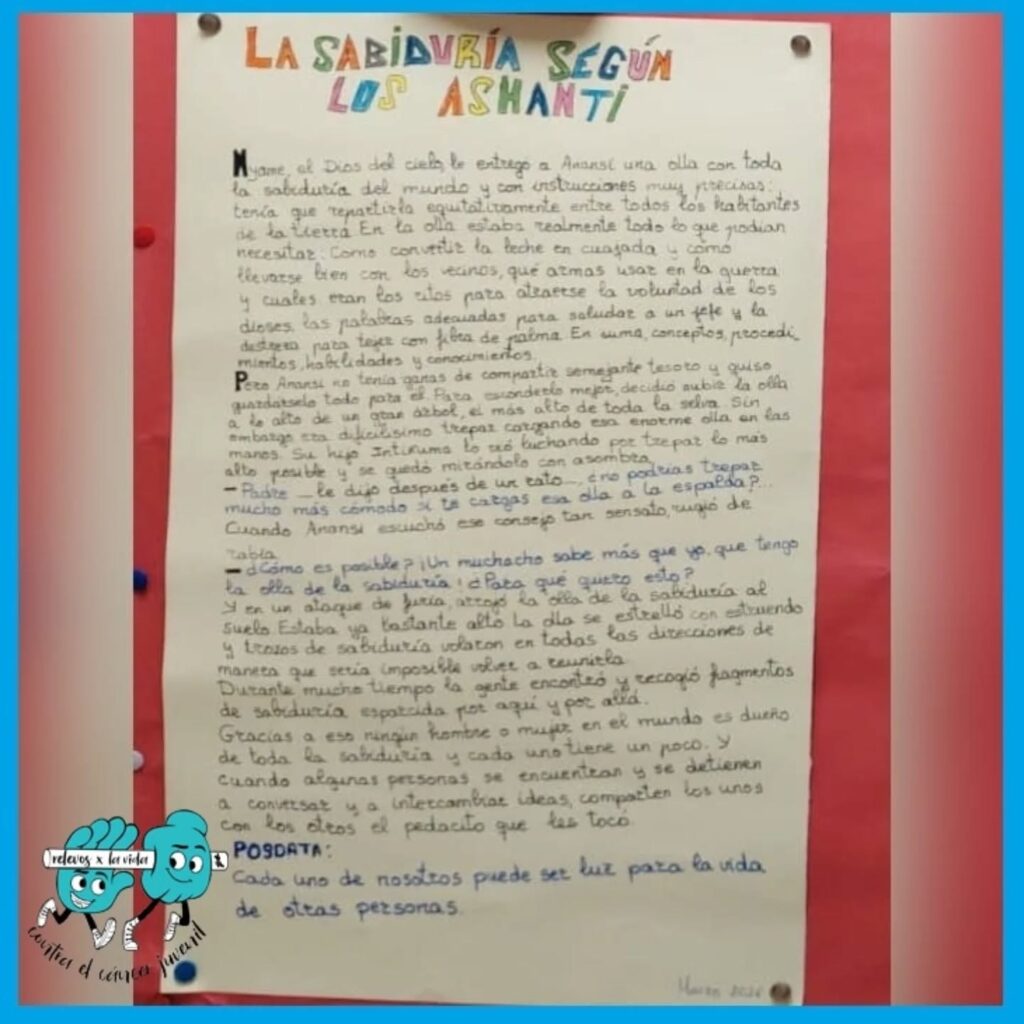 LA SABIDURÍA SEGÚN
LOS ASHANTI
Nyame, el Dios del cielo, le entregó a Anansi una olla con toda
la sabiduría del mundo y con instrucciones muy precisas:
tenía que repartirla equitativamente entre todos los habitantes
de la tierra. En la olla estaba realmente todo lo que podían
necesitar. Como convertir la leche en cuajada y cómo
llevarse bien con los vecinos, qué armas usar en la guerra
y cuales eran los ritos para atraerse la voluntad de los
dioses, las palabras adecuadas para saludar a un jefe y la
destreza para tejer con fibra de palma. En suma, conceptos, procedi_
mientos, habilidades y conocimientos.
Pero Anansi no tenía ganas de compartir semejante tesoro y quiso
guardárselo todo para él. Para esconderlo mejor, decidió subir la olla
a lo alto de un gran árbol, el más alto de toda la selva. Sin
embargo era dificilísimo trepar cargando esa enorme olla en las
manos. Su hijo Intikuma lo vió luchando por trepar lo más
alto posible y se quedó mirándolo con asombro.
— Padre — le dijo después de un rato —, ¿no podrías trepar
mucho más cómodo si te cargas esa olla a la espalda?...
Cuando Anansi escuchó ese consejo tan sensato, rugió de
rabia.
— ¿Cómo es posible? ¡Un muchacho sabe más que yo, que tengo
la olla de la sabiduría! ¿Para qué quiero esto?
Y en un ataque de furia, arrojó la olla de la sabiduría al
suelo. Estaba ya bastante alto. La olla se estrelló con estruendo
y trozos de sabiduría volaron en todas las direcciones de
manera que sería imposible volver a reunirla.
Durante mucho tiempo la gente encontró y recogió fragmentos
de sabiduría esparcida por aquí y por allá.
Gracias a eso ningún hombre o mujer en el mundo es dueño
de toda la sabiduría y cada uno tiene un poco. Y
cuando algunas personas se encuentran y se detienen
a conversar y a intercambiar ideas, comparten los unos
con los otros el pedacito que les tocó.
POSDATA:
Cada uno de nosotros puede ser luz para la vida
de otras personas.
relevos x la vida
contra el cáncer juvenil